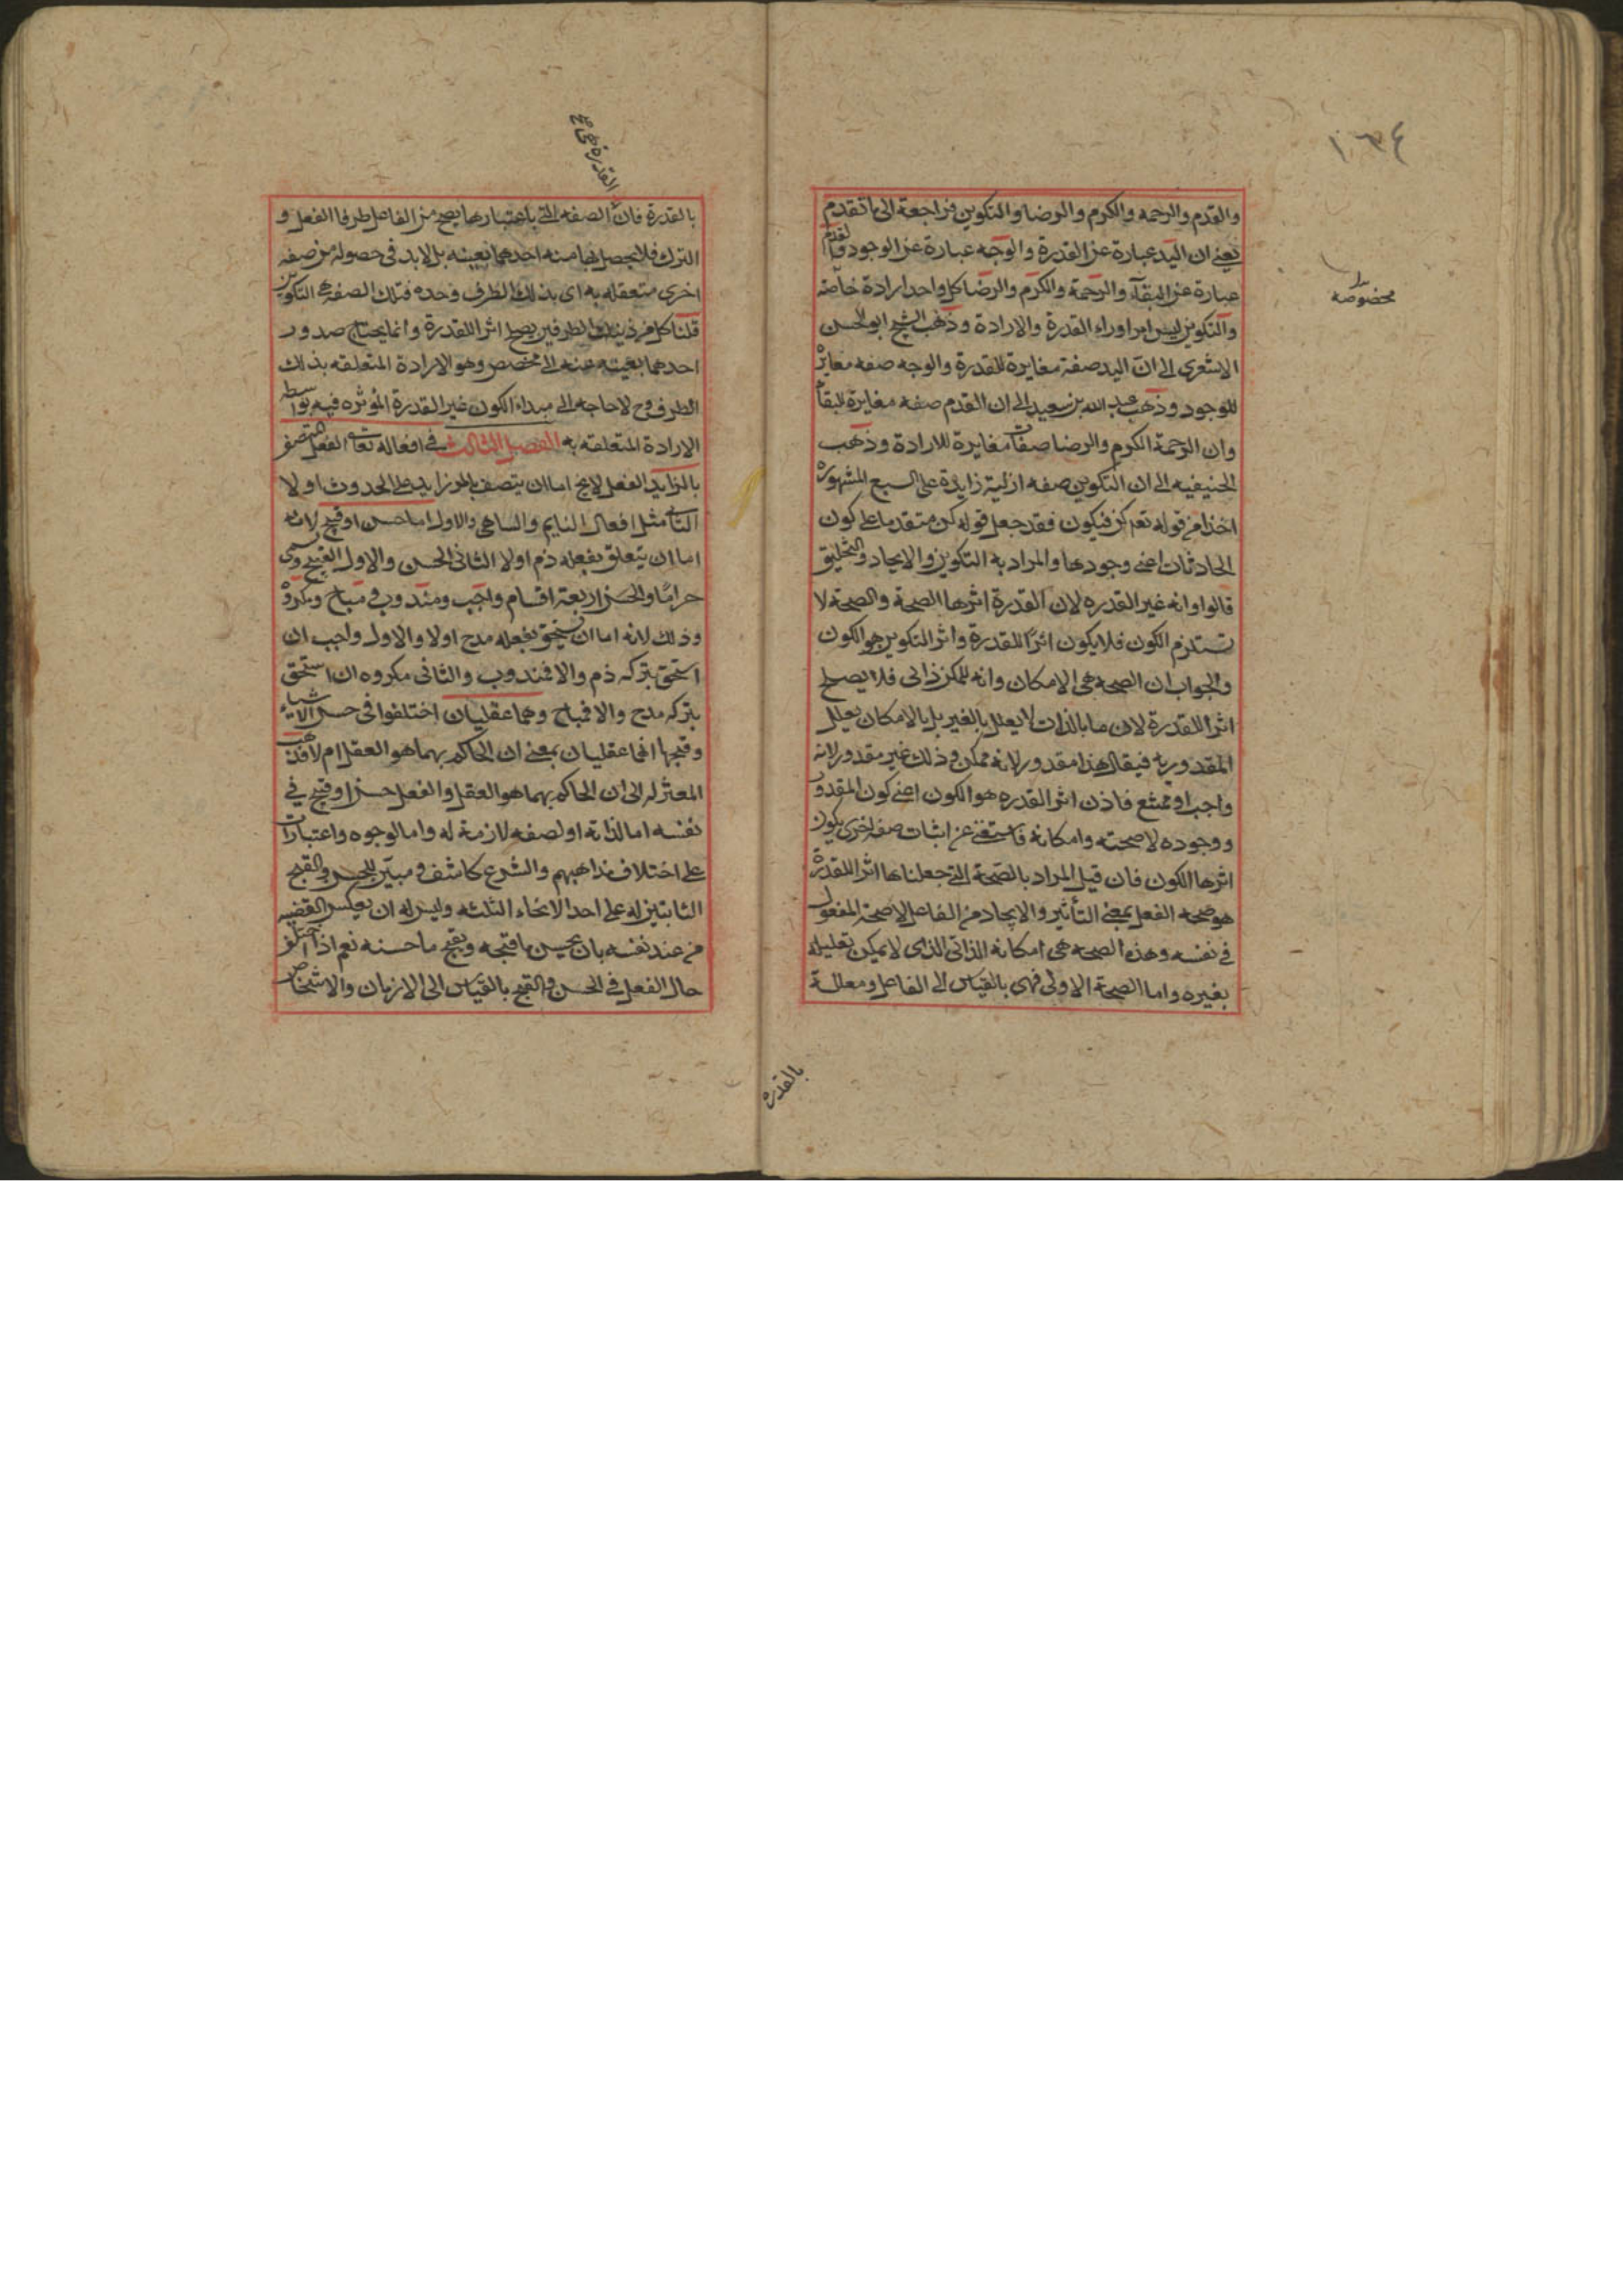 ١٣٤
والقدم والرحمه والكرم والرضا والتكوين فراجعة الى ما تقدم
يعنى ان اليد عبارة عن القدرة والوجه عبارة عن الوجود والقدم
عبارة عن البقآء والرحمة والكرم والرضا كل واحد ارادة خاصه
مخصوصه
والتكوين ليس امرا وراء القدرة والارادة وذهب الشيخ ابو الحسن
الاشعرى الى ان اليد صفة مغايرة للقدرة والوجه صفه مغايرة
للوجود وذهب عبد الله بن سعيد الى ان القدم صفه مغايرة للبقآ
وان الرحمة الكرم والرضا صفات مغايرة للارادة وذهب
الحنيفيه الى ان التكوين صفه ازلية زايدة على السبع المشهورة
اخذا من قوله تعم كن فيكون فقد جعل قوله كن متقدما على كون
الحادثات اعنى وجودها والمراد به التكوين والايجاد والتخليق
قالوا وانه غير القدره لان القدرة اثرها الصحة والصحة لا
تستلزم الكون فلا يكون اثرًا للقدرة واثر التكوين هو الكون
والجواب ان الصحه هى الامكان وانه للممكن ذاتى فلا يصلح
اثرا للقدرة لان ما بالذات لا يعلل بالغير بل بالامكان يعلل
المقدوريه فيقال هذا مقدور لانه ممكن وذلك غير مقدور لانه
واجب او ممتنع فاذن اثر القدره هو الكون اعنى كون المقدور
ووجوده لا صحته وامكانه فاستغنى عن اثبات صفه اخرى يكون
اثرها الكون فان قيل المراد بالصحة التى جعلناها اثرا للقدرة
هو صحه الفعل بمعنى التأثير والايجاد من الفاعل لا صحة المفعول
فى نفسه وهذه الصحه هى امكانه الذاتى الذى لا يمكن تعليله
بغيره واما الصحة الاولى فهى بالقياس الى الفاعل ومعللة
بالقدرة
بالقدرة فان الصفه التى باعتبارها يصح من الفاعل طرفا الفعل و
الترك فلا يحصل بها منه احدهما بعينه بل لا بد فى حصوله من صفه
اخرى متعلقه به اى بذلك الطرف وحده فتلك الصفه هى التكوين
قلنا كل من ذينك الطرفين يصلح اثرا للقدرة وانما يحتاج صدور
احدهما بعينه عنه الى مخصص وهو الارادة المتعلقه بذلك
الطرف وح لا حاجه الى مبداء الكون غير القدرة المؤثره فيه بواسطه
الارادة المتعلقه به الفصل الثالث فى افعاله تعالى الفعل المتصف
بالزايد الفعل لا يخ اما ان يتصف بامر زايد على الحدوث او لا
الثانى مثل افعال النايم والساهى والاول اما حسن او قبيح لانه
اما ان يتعلق بفعله ذم او لا الثانى الحسن والاول القبيح ويسمى
حرامًا والحسن اربعة اقسام واجب ومندوب ومباح ومكروه
وذلك لانه اما ان يستحق بفعله مدح او لا والاول واجب ان
استحق بتركه ذم والا فمندوب والثانى مكروه ان استحق
بتركه مدح والا فمباح وهما عقليان اختلفوا فى حسن الاشياء
وقبحها انهما عقليان بمعنى ان الحاكم بهما هو العقل ام لا فذهب
المعتزله الى ان الحاكم بهما هو العقل والفعل حسن او قبيح فى
نفسه اما لذاته او لصفه لازمة له واما لوجوه واعتبارات
على اختلاف مذاهبهم والشرع كاشف ومبيّن للحسن والقبح
الثابتين له على احد الانحاء الثلثه وليس له ان يعكس القضيه
من عند نفسه بان يحسن ما قبحه ويقبح ما حسنه نعم اذا اختلف
حال الفعل فى الحسن والقبح بالقياس الى الازمان والاشخاص